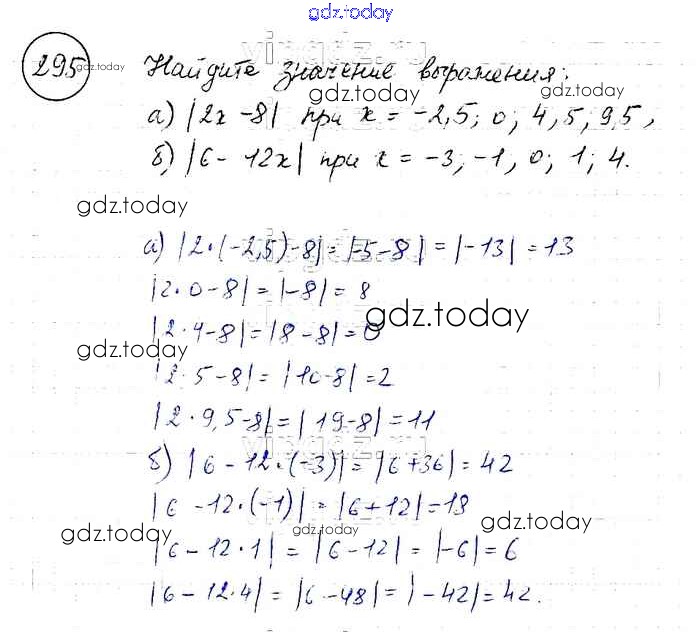 gdz.today
295 Найдите значение выражения:
gdz.today
gdz.today
а) |2x -8| при x = -2,5; 0; 4, 5, 9,5,
б) |6 - 12x| при x = -3; -1, 0; 1; 4.
gdz.today
а) |2·(-2,5)-8| = |-5-8| = |-13| = 13
|2·0-8| = |-8| = 8
|2·4-8| = |8-8| = 0
gdz.today
gdz.today
|2·5-8| = |10-8| = 2
|2·9,5-8| = |19-8| = 11
б) |6 - 12·(-3)| = |6+36| = 42
|6 -12·(-1)| = |6+12| = 18
gdz.today
gdz.today
|6 - 12·1| = |6-12| = |-6| = 6
|6 - 12·4| = |6-48| = |-42| = 42.